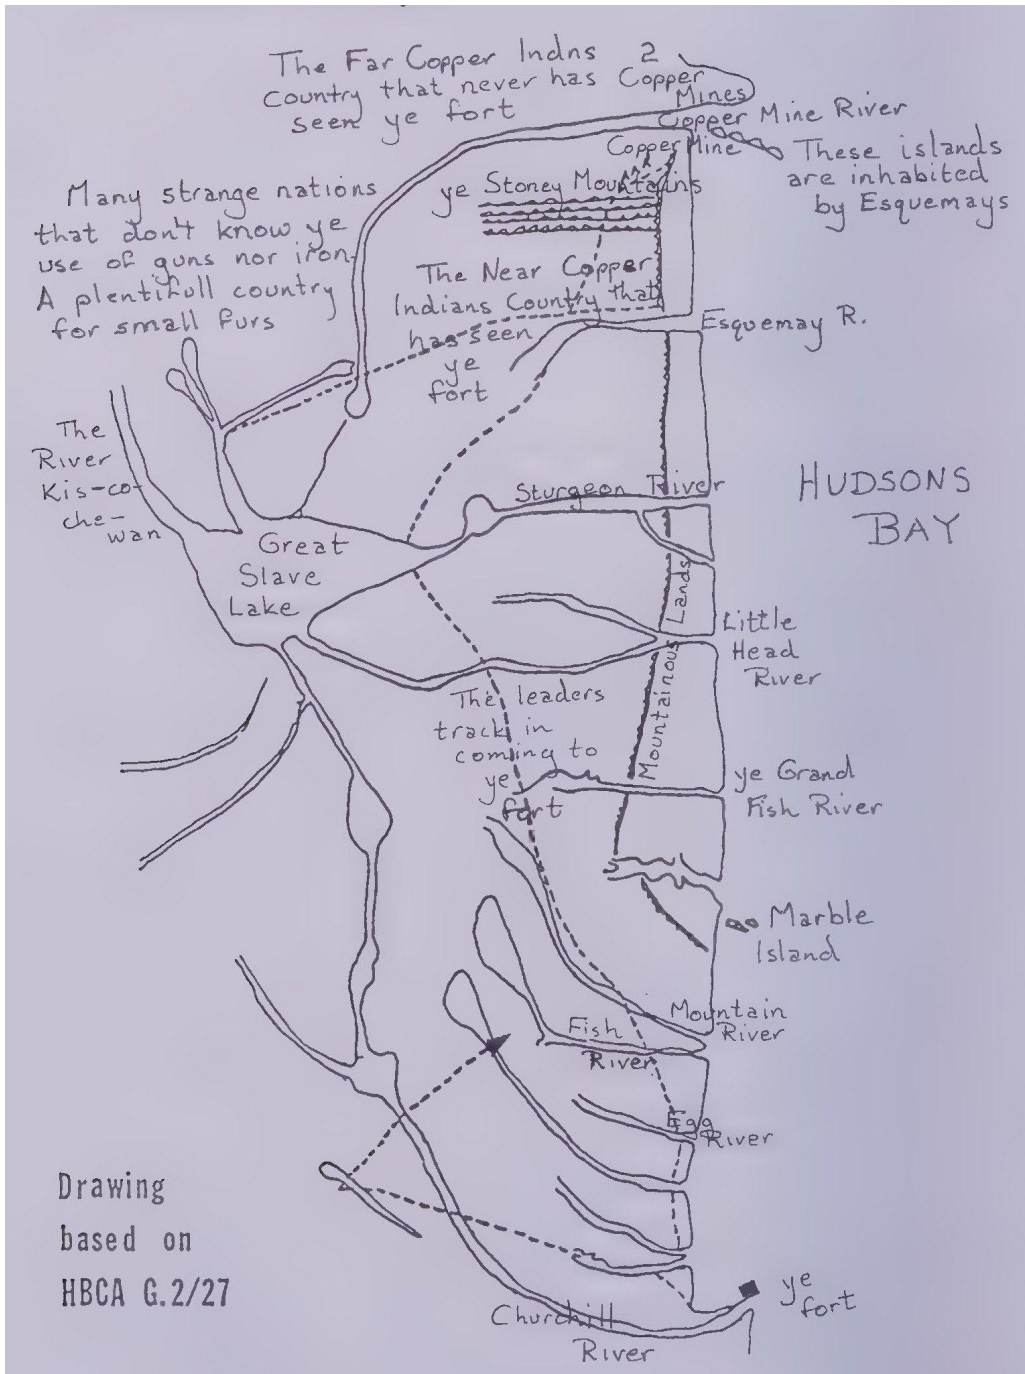 The Far Copper Indns
country that never has
seen ye fort
2
Copper
Mines
Copper Mine River
Copper Mine
These islands
are inhabited
by Esquemays
ye Stoney Mountains
Many strange nations
that don't know ye
use of guns nor iron.
A plentifull country
for small furs
The Near Copper
Indians Country that
has seen
ye
fort
Esquemay R.
The
River
Kis-co-
che-
wan
Sturgeon River
HUDSONS
BAY
Great
Slave
Lake
Mountainous Lands
Little
Head
River
The leaders
track in
coming to
ye
fort
ye Grand
Fish River
Marble
Island
Mountain
River
Fish
River
Egg
River
Drawing
based on
HBCA G.2/27
ye
fort
Churchill
River